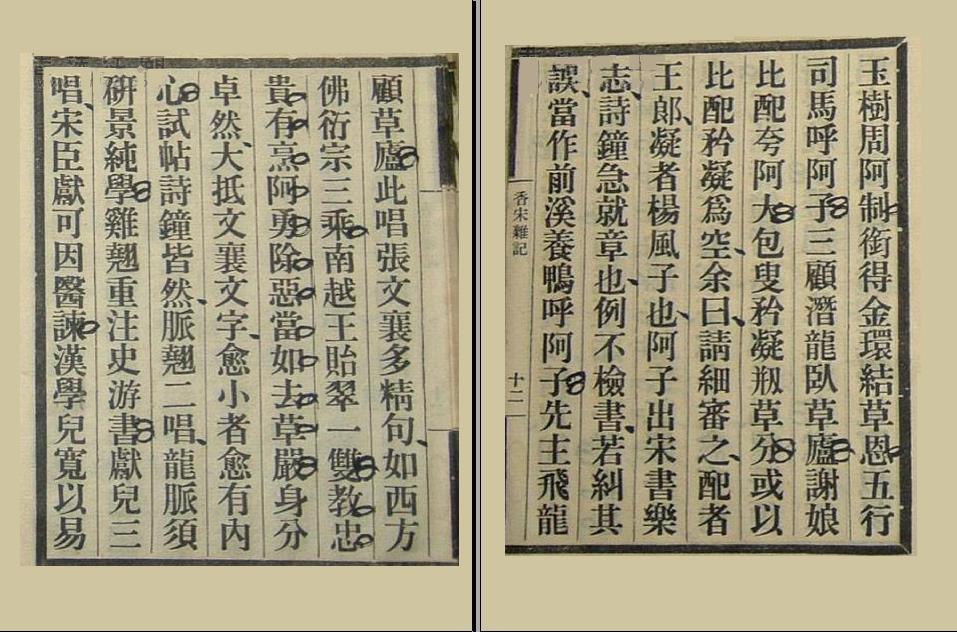 玉樹周阿制銜得金環結草恩五行
司馬呼阿子三顧潛龍臥草廬謝娘
比配夸阿大包叟矜凝剏草分或以
比配矜凝爲空余曰請細審之配者
王郎凝者楊風子也阿子出宋書樂
志詩鐘急就章也例不檢書若糾其
誤當作前溪養鴨呼阿子先主飛龍
香宋雜記
十二
顧草廬此唱張文襄多精句如西方
佛衍宗三乘南越王貽翠一雙教忠
貴有烹阿勇除惡當如去草嚴身分
卓然大抵文襄文字愈小者愈有內
心試帖詩鐘皆然脈翹二唱龍脈須
研景純學雞翹重注史游書獻兒三
唱宋臣獻可因醫諫漢學兒寬以易